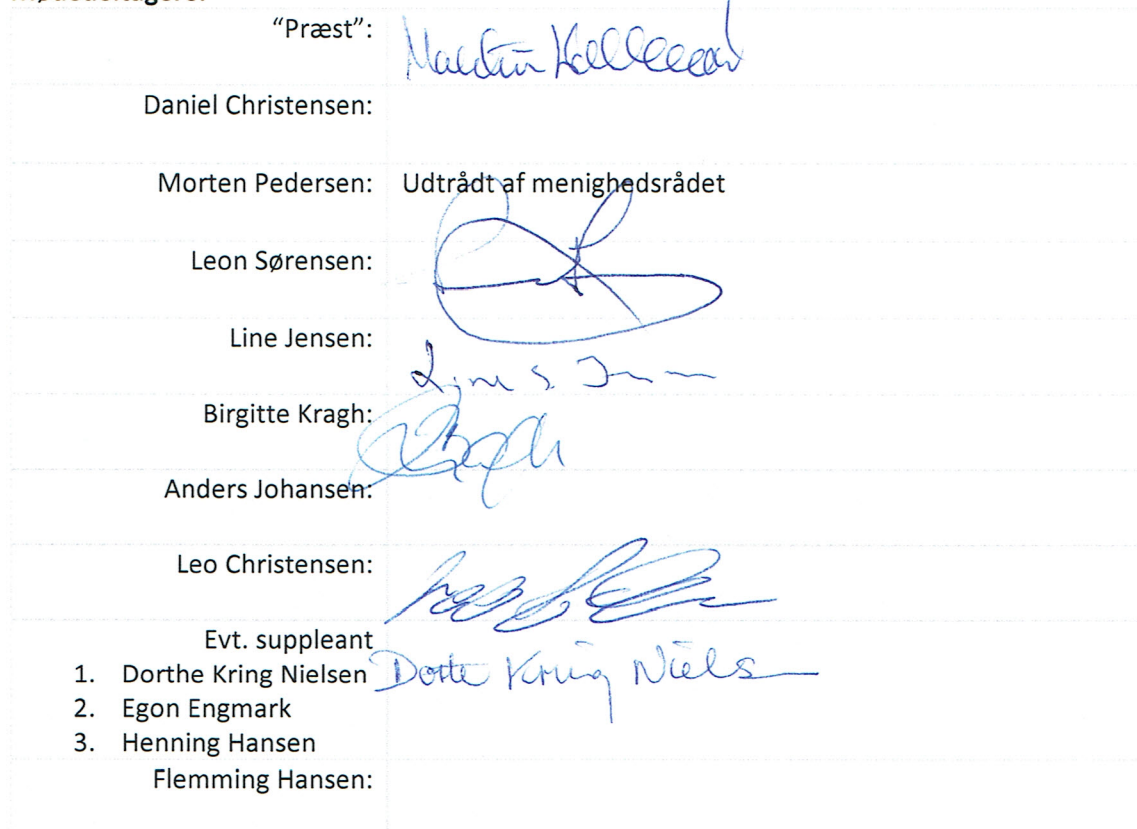 "Præst":
Daniel Christensen:
Morten Pedersen: Udtrådt af menighedsrådet
Leon Sørensen:
Line Jensen:
Line S. Jensen
Birgitte Kragh:
Anders Johansen:
Leo Christensen:
Evt. suppleant
1. Dorthe Kring Nielsen Dorte Kring Nielsen
2. Egon Engmark
3. Henning Hansen
Flemming Hansen: